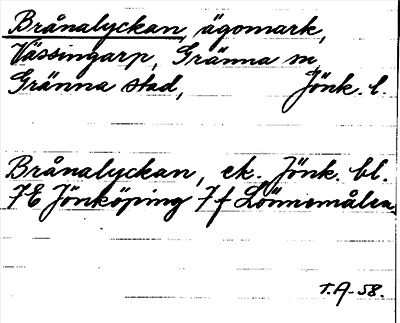 Brånalyckan, ägomark,
Vässingarp, Gränna sn,
Gränna stad, Jönk. l.
Brånalyckan, ek. Jönk. bl.
7E Jönköping 7f Lönnemålen
T.A-58.